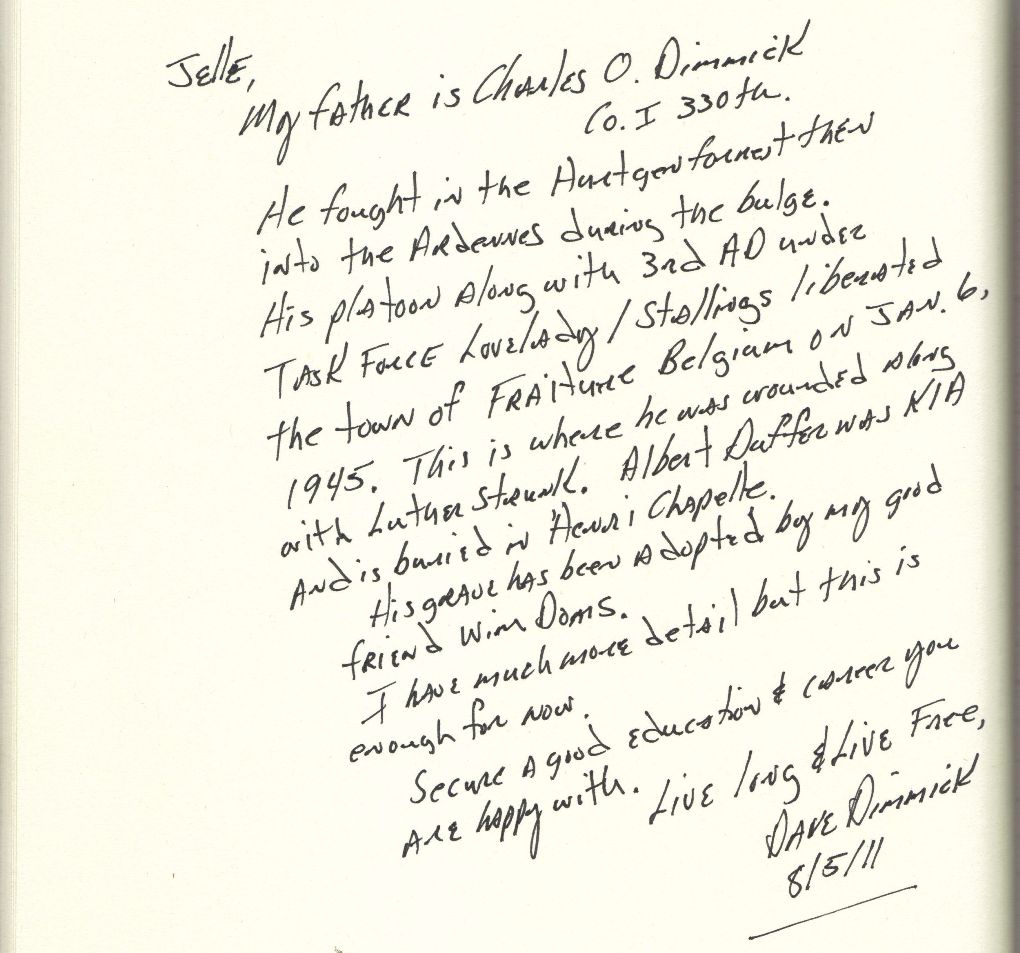 Jelle,
My father is Charles O. Dimmick
Co. I 330th.
He fought in the Hurtgen forrest then
into the Ardennes during the bulge.
His platoon along with 3rd AD under
Task Force Lovelady/Stallings liberated
the town of Fraiture Belgium on Jan. 6,
1945. This is where he was wounded along
with Luther Strunk. Albert Duffer was KIA
and is buried in Henri Chapelle.
His grave has been adopted by my good
friend Wim Doms.
I have much more detail but this is
enough for now.
Secure a good education & career you
are happy with. Live long & Live Free,
Dave Dimmick
8/5/11